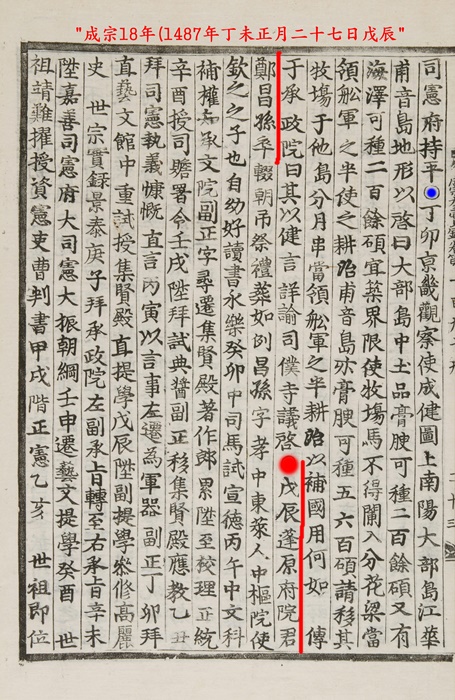 "成宗18年(1487年丁未正月二十七日戊辰"
司憲府持平 丁卯京畿觀察使成健圖上南陽大部島江華
甫音島地形以啓曰大部島中土品膏腴可種二百餘碩又有
海澤可種二百餘碩宜築界限使牧場馬不得闌入分花梁當
領舩軍之半使之耕治甫音島亦膏腴可種五六百碩請移其
牧場于他島分月串當領舩軍之半耕治以補國用何如 傳
于承政院曰其以健言詳諭司僕寺議啓 戊辰蓬原府院君
鄭昌孫卒輟朝弔祭禮葬如例昌孫字孝中東萊人中樞院使
欽之之子也自幼好讀書永樂癸卯中司馬試宣德丙午中文科
補權知承文院副正字尋遷集賢殿著作郎累陞至校理正統
辛酉授司贍署令壬戌陞拜試典醬副正移集賢殿應敎乙丑
拜司憲執義慷慨直言丙寅以言事左遷爲軍器副正丁卯拜
直藝文館中重試授集賢殿直提學戊辰陞副提學叅修高麗
史 世宗實錄景泰庚午拜承政院左副承旨轉至右承旨辛未
陞嘉善司憲府大司憲大振朝綱壬申遷藝文提學癸酉 世
祖靖難擢授資憲吏曹判書甲戌階正憲乙亥 世祖即位